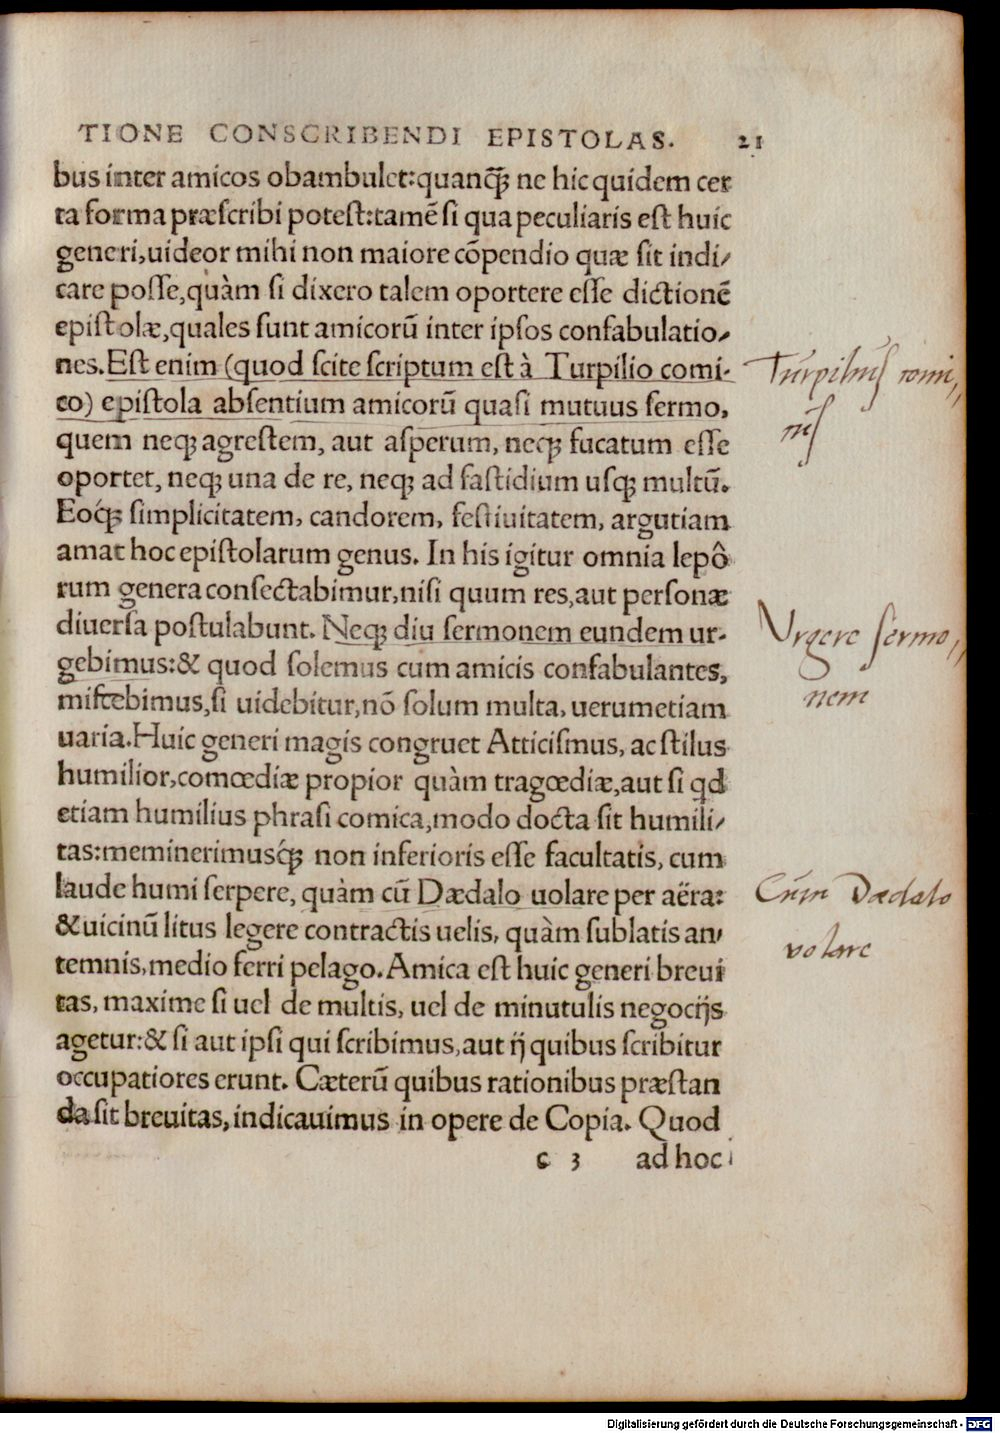 TIONE CONSCRIBENDI EPISTOLAS. 21
bus inter amicos obambulet:quanq̃ꝫ ne hic quidem cer
ta forma præſcribi poteſt:tamẽ ſi qua peculiaris eſt huic
generi,uideor mihi non maiore cõpendio quæ ſit indi/
care poſſe,quàm ſi dixero talem oportere eſſe dictionẽ
epiſtolæ,quales ſunt amicorũ inter ipſos confabulatio/
nes.Eſt enim (quod ſcite ſcriptum eſt à Turpilio comi-
co) epiſtola abſentium amicorũ quaſi mutuus ſermo,
quem neqꝫ agreſtem, aut aſperum, neqꝫ fucatum eſſe
oportet, neqꝫ una de re, neqꝫ ad faſtidium uſqꝫ multũ.
Eóqꝫ ſimplicitatem, candorem, feſtiuitatem, argutiam
amat hoc epiſtolarum genus. In his igitur omnia lepô
rum genera conſectabimur,niſi quum res,aut perſonæ
diuerſa poſtulabunt. Neqꝫ diu ſermonem eundem ur-
gebimus:& quod ſolemus cum amicis confabulantes,
miſcebimus,ſi uidebitur,nõ ſolum multa, uerumetiam
uaria.Huic generi magis congruet Atticiſmus, ac ſtilus
humilior,comœdiæ propior quàm tragœdiæ,aut ſi qd
etiam humilius phraſi comica,modo docta ſit humili/
tas:meminerimusq́ꝫ non inferioris eſſe facultatis, cum
laude humi ſerpere, quàm cũ Dædalo uolare per aëra:
& uicinũ litus legere contractis uelis, quàm ſublatis an/
temnis,medio ferri pelago. Amica eſt huic generi breui
tas, maxime ſi uel de multis, uel de minutulis negocijs
agetur:& ſi aut ipſi qui ſcribimus,aut ij quibus ſcribitur
occupatiores erunt. Cæterũ quibus rationibus præſtan
da ſit breuitas, indicauimus in opere de Copia. Quod
c 3 ad hoc
Turpilius comi//
cus
Vrgere ſermo//
nem
Cum Dædalo
volare
Digitalisierung gefördert durch die Deutsche Forschungsgemeinschaft - DFG